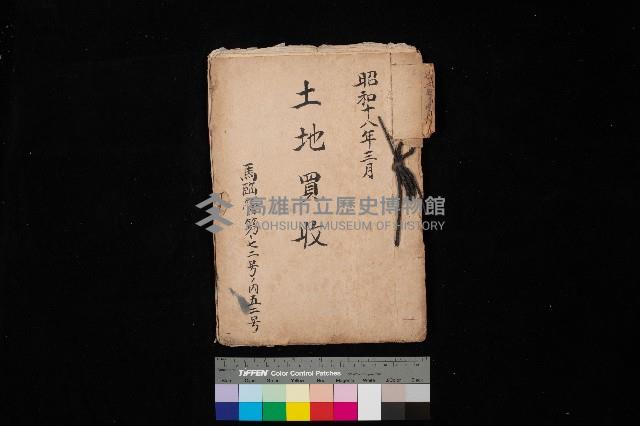 昭和十八年三月
土地買収
馬臨第七二号ノ内五二号
高雄市立歷史博物館
KAOHSIUNG MUSEUM OF HISTORY
TIFFEN Color Control Patches
Blue Cyan Green Yellow Red Magenta White 3/Color Black